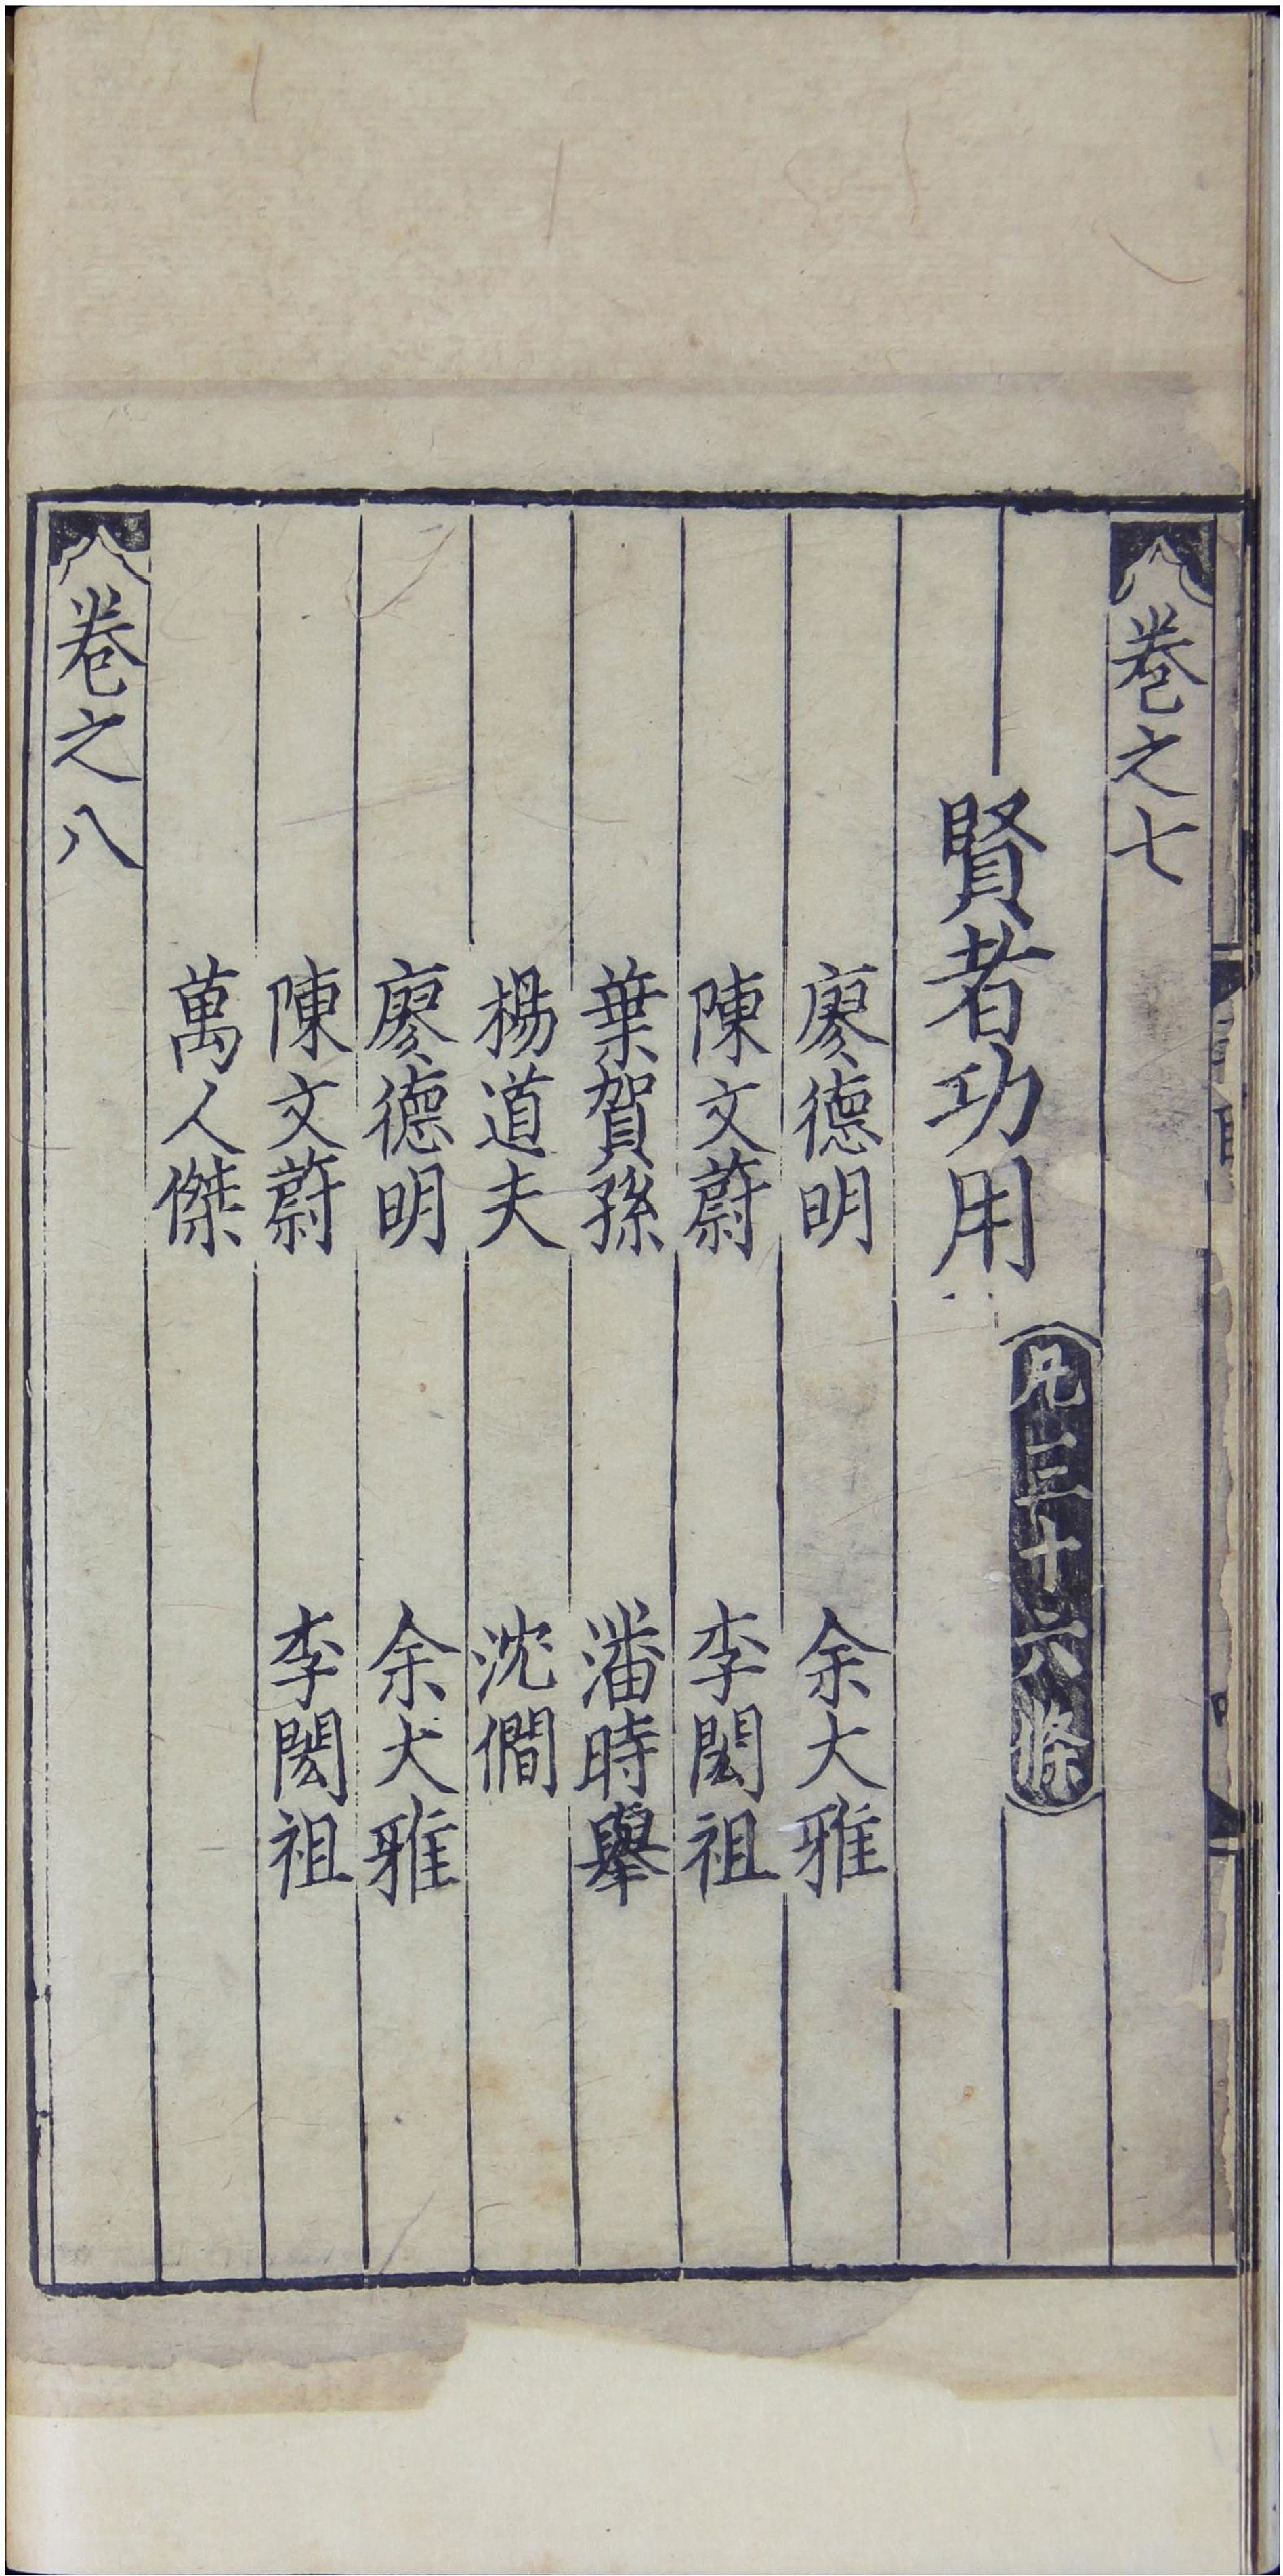 卷之七
凡三十六條
賢者功用
廖德明 余大雅
陳文蔚 李閎祖
葉賀孫 潘時舉
楊道夫 沈僩
廖德明 余大雅
陳文蔚 李閎祖
萬人傑
卷之八